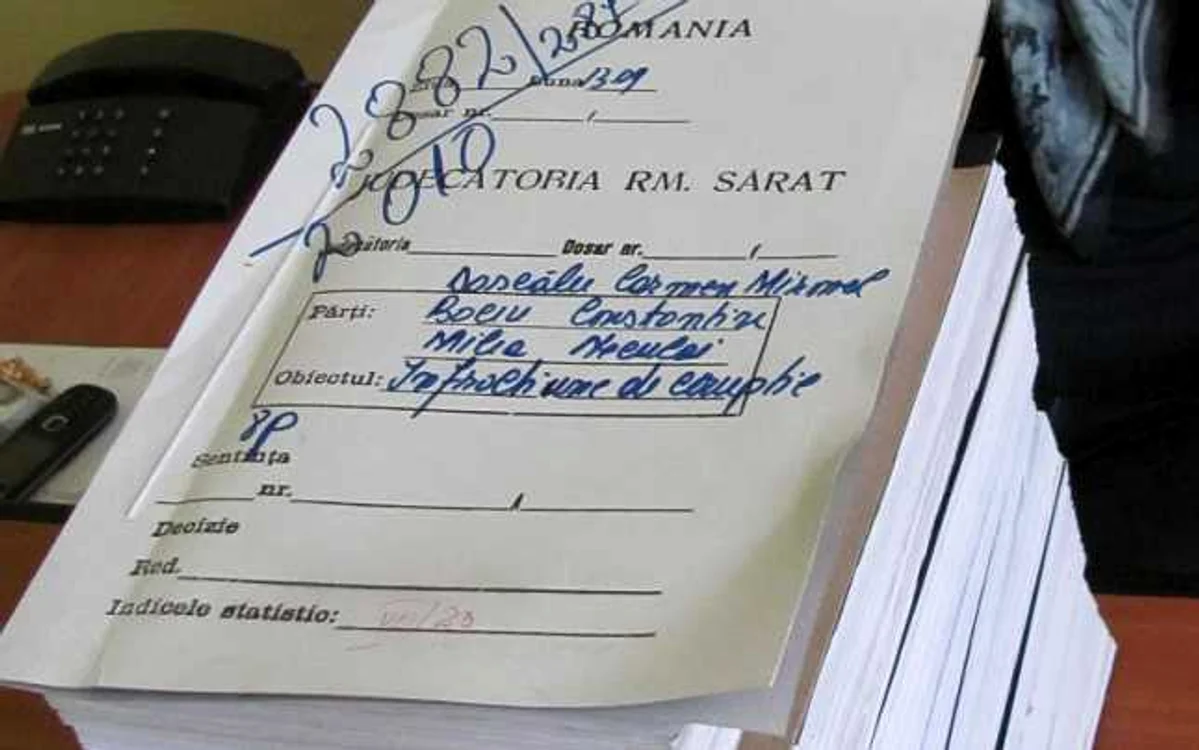 ROMANIA
2882/287
Luna 13.09
Dosar nr. /
2010
JUDECATORIA RM. SARAT
Dosar nr. /
Dascălu Carmen Mirmel
Părți: Bociu Constantin
Milea Neculai
Obiectul: Infracțiune de corupție
Sentința
nr. /
Decizie
Red.
Indicele statistic: